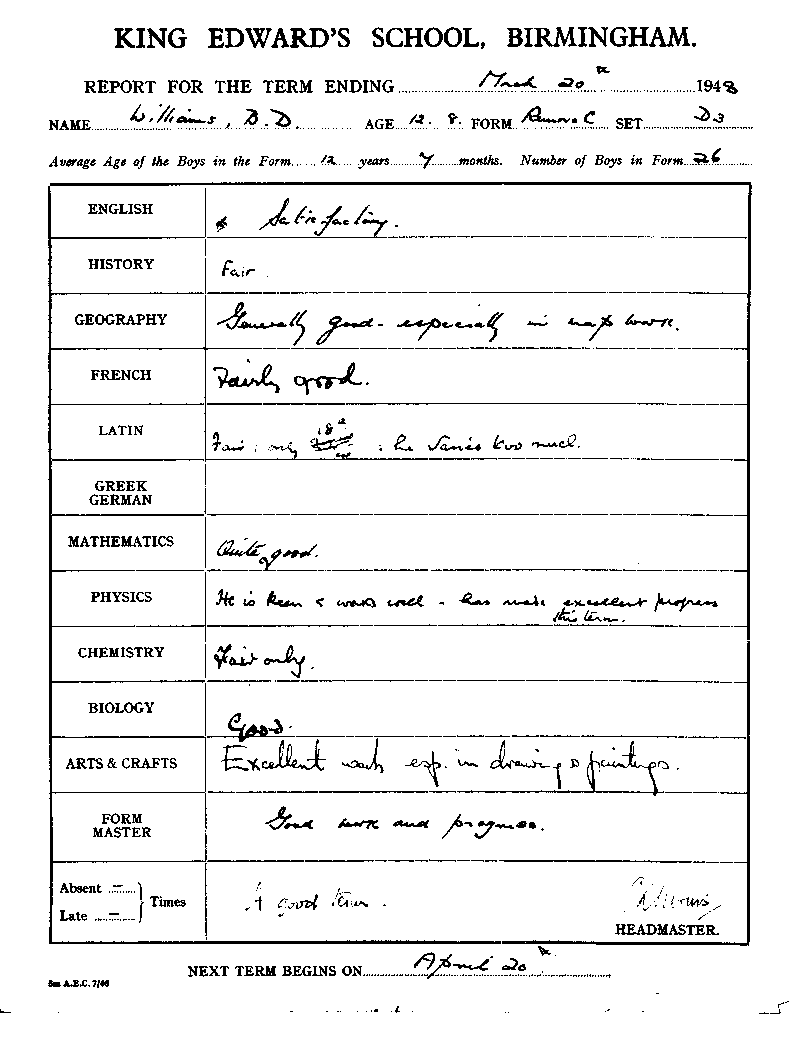 KING EDWARD'S SCHOOL, BIRMINGHAM.
REPORT FOR THE TERM ENDING March 20th 1948
NAME Williams, B.D. AGE 12. 8. FORM Remove C SET D3
Average Age of the Boys in the Form 12 years 7 months. Number of Boys in Form 26
ENGLISH Satisfactory.
HISTORY Fair.
GEOGRAPHY Generally good - especially in map work.
FRENCH Fairly good.
LATIN Fair: only 18th : he varies too much.
GREEK
GERMAN
MATHEMATICS Quite good.
PHYSICS He is keen & works well - has made excellent progress
this term.
CHEMISTRY Fair only.
BIOLOGY Good.
ARTS & CRAFTS Excellent work esp. in drawing & paintings.
FORM
MASTER Good work and progress.
Absent – Times
Late –
A good term.
HEADMASTER.
NEXT TERM BEGINS ON April 20th
A.E.C. 7/46